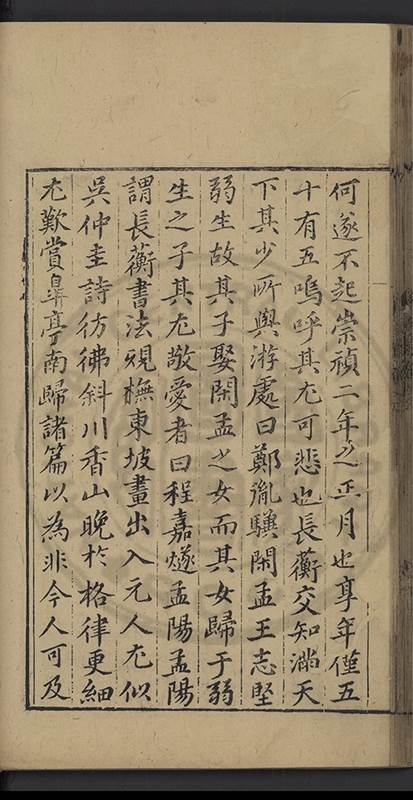 何遂不起崇禎二年之正月也享年僅五
十有五嗚呼其尤可悲也長蘅交知滿天
下其少所與游處曰鄭胤驥閑孟王志堅
弱生故其子娶閑孟之女而其女歸于弱
生之子其尤敬愛者曰程嘉燧孟陽孟陽
謂長蘅書法規橅東坡畫出入元人尤似
吳仲圭詩彷彿斜川香山晚於格律更細
尤歎賞皋亭南歸諸篇以為非今人可及